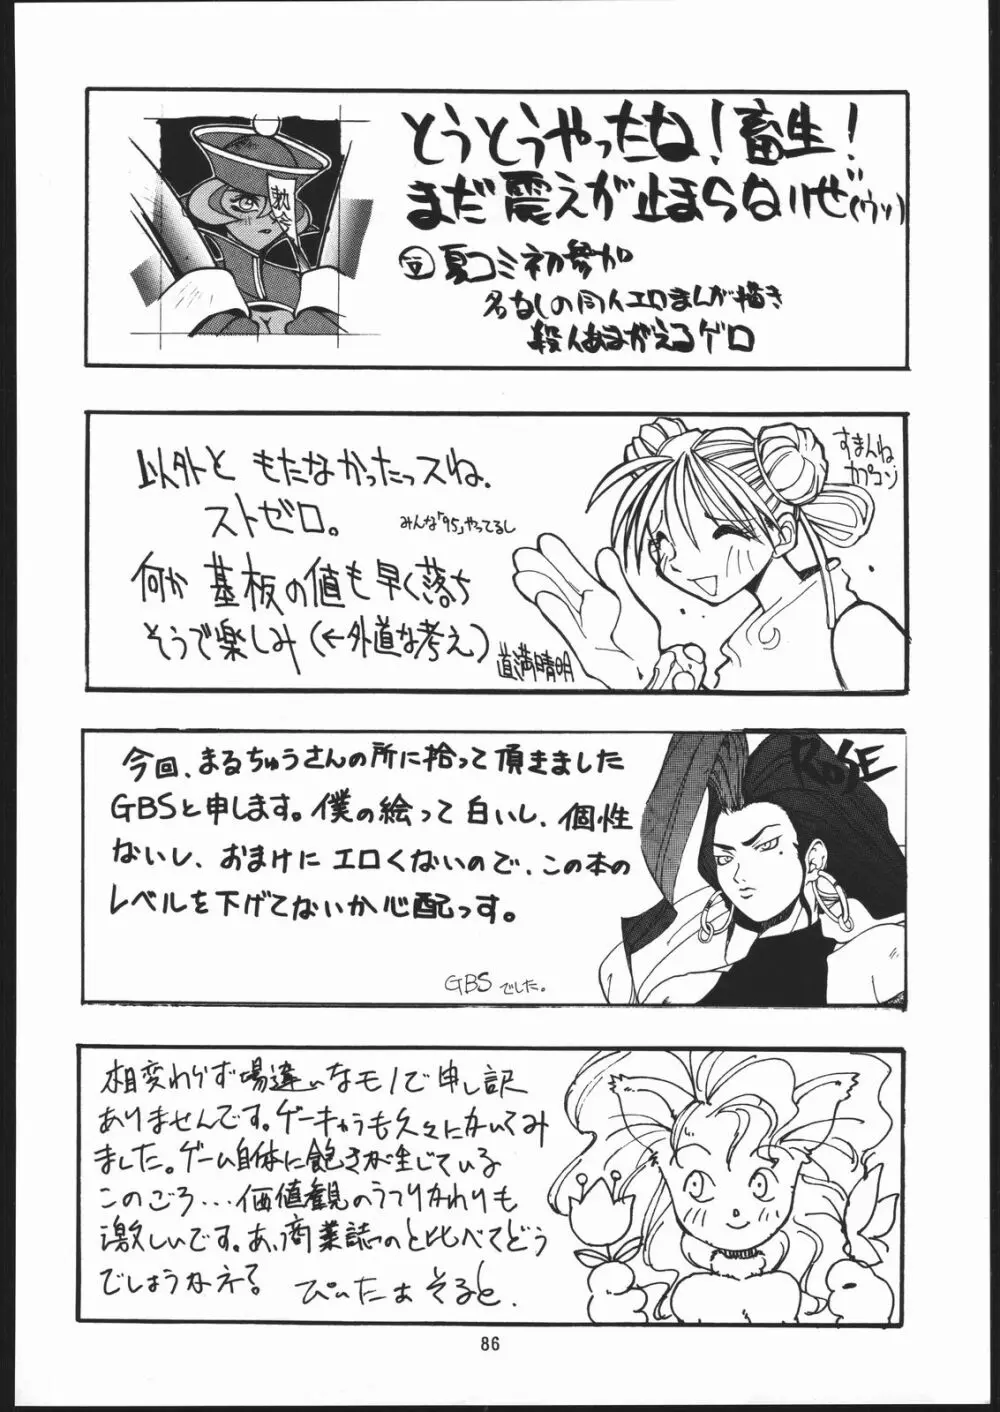 とうとうやったね!畜生!
まだ震えが止まらないぜ(ウッ)
夏コミ初参加
名なしの同人エロまんが描き
殺人あまがえるゲロ
勅令
以外と もたなかったっスね、
ストゼロ。
みんな「95」やってるし
何か 基板の値も早く落ち
そうで楽しみ(←外道な考え)
道満晴明
すまんね
カプコン
今回、まるちゅうさんの所に拾って頂きました
GBSと申します。僕の絵って白いし、個性
ないし、おまけに エロくないので、この本の
レベルを下げてないか心配っす。
GBSでした。
ROSE
相変わらず場違いなモノで申し訳
ありませんです。ゲーキャラも久々にかいてみ
ました。ゲーム自体に飽きが生じている
このごろ…価値観のうつりかわりも
激しいです。あ、商業誌のと比べてどう
でしょうかネ?
ぴいたぁ そると.
86